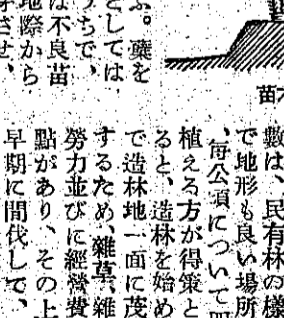 苗木
數は、民有林の樣
で地形も良い場所
、毎公頃について
植える方が得策と
ると、造林を始め
で造林地一面に茂
するため、雜草、雜
勞力並びに經營費
點があり、その上
早期に間伐して、
ぶ。藥を
としては、
うちで、
は不良苗
地際から
させ、